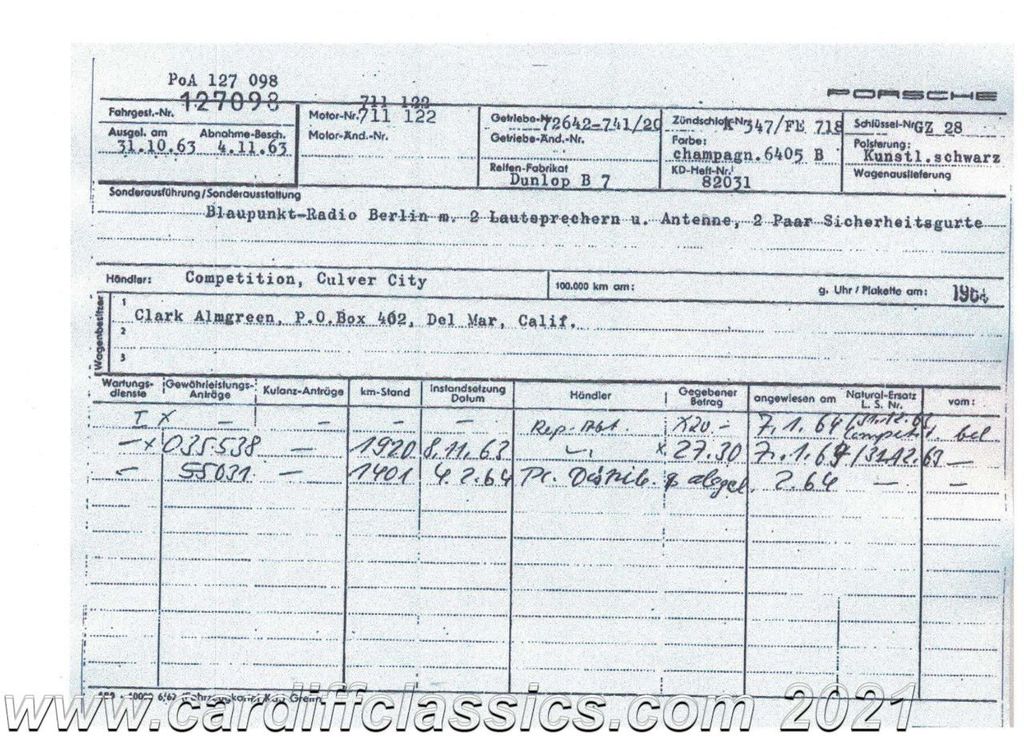 PoA 127 098
PORSCHE
Fahrgest.-Nr. 127098
Motor-Nr. 711 122
711 122
Getriebe-Nr. 72642-741/20
Zündschloß-Nr. K 547/FE 718
Schlüssel-Nr. GZ 28
Ausgel. am 31.10.63
Abnahme-Besch. 4.11.63
Motor-Änd.-Nr.
Getriebe-Änd.-Nr.
Farbe: champagn.6405 B
Polsterung: Kunstl.schwarz
Reifen-Fabrikat Dunlop B 7
KD-Heft-Nr. 82031
Wagenauslieferung
Sonderausführung/Sonderausstattung
Blaupunkt-Radio Berlin m. 2 Lautsprechern u. Antenne, 2 Paar Sicherheitsgurte
Händler: Competition, Culver City
100.000 km am:
g. Uhr / Plakette am: 1964
Wagenbesitzer
1 Clark Almgreen, P.O.Box 402, Del Mar, Calif.
2
3
Wartungs-dienste Gewährleistungs-Anträge Kulanz-Anträge km-Stand Instandsetzung Datum Händler Gegebener Betrag angewiesen am Natural-Ersatz L. S. Nr. vom:
I X — — — — Rep.-Abt. X20.- 7.1.64 /31.12.63 bel
— x 035538 — 1920 8.11.63 x 27.30 7.1.64 /31.12.63 —
— 55031 — 1401 4.2.64 Pr. Distrib. abgel. 2.64 — —
6/62
www.cardiffclassics.com 2021